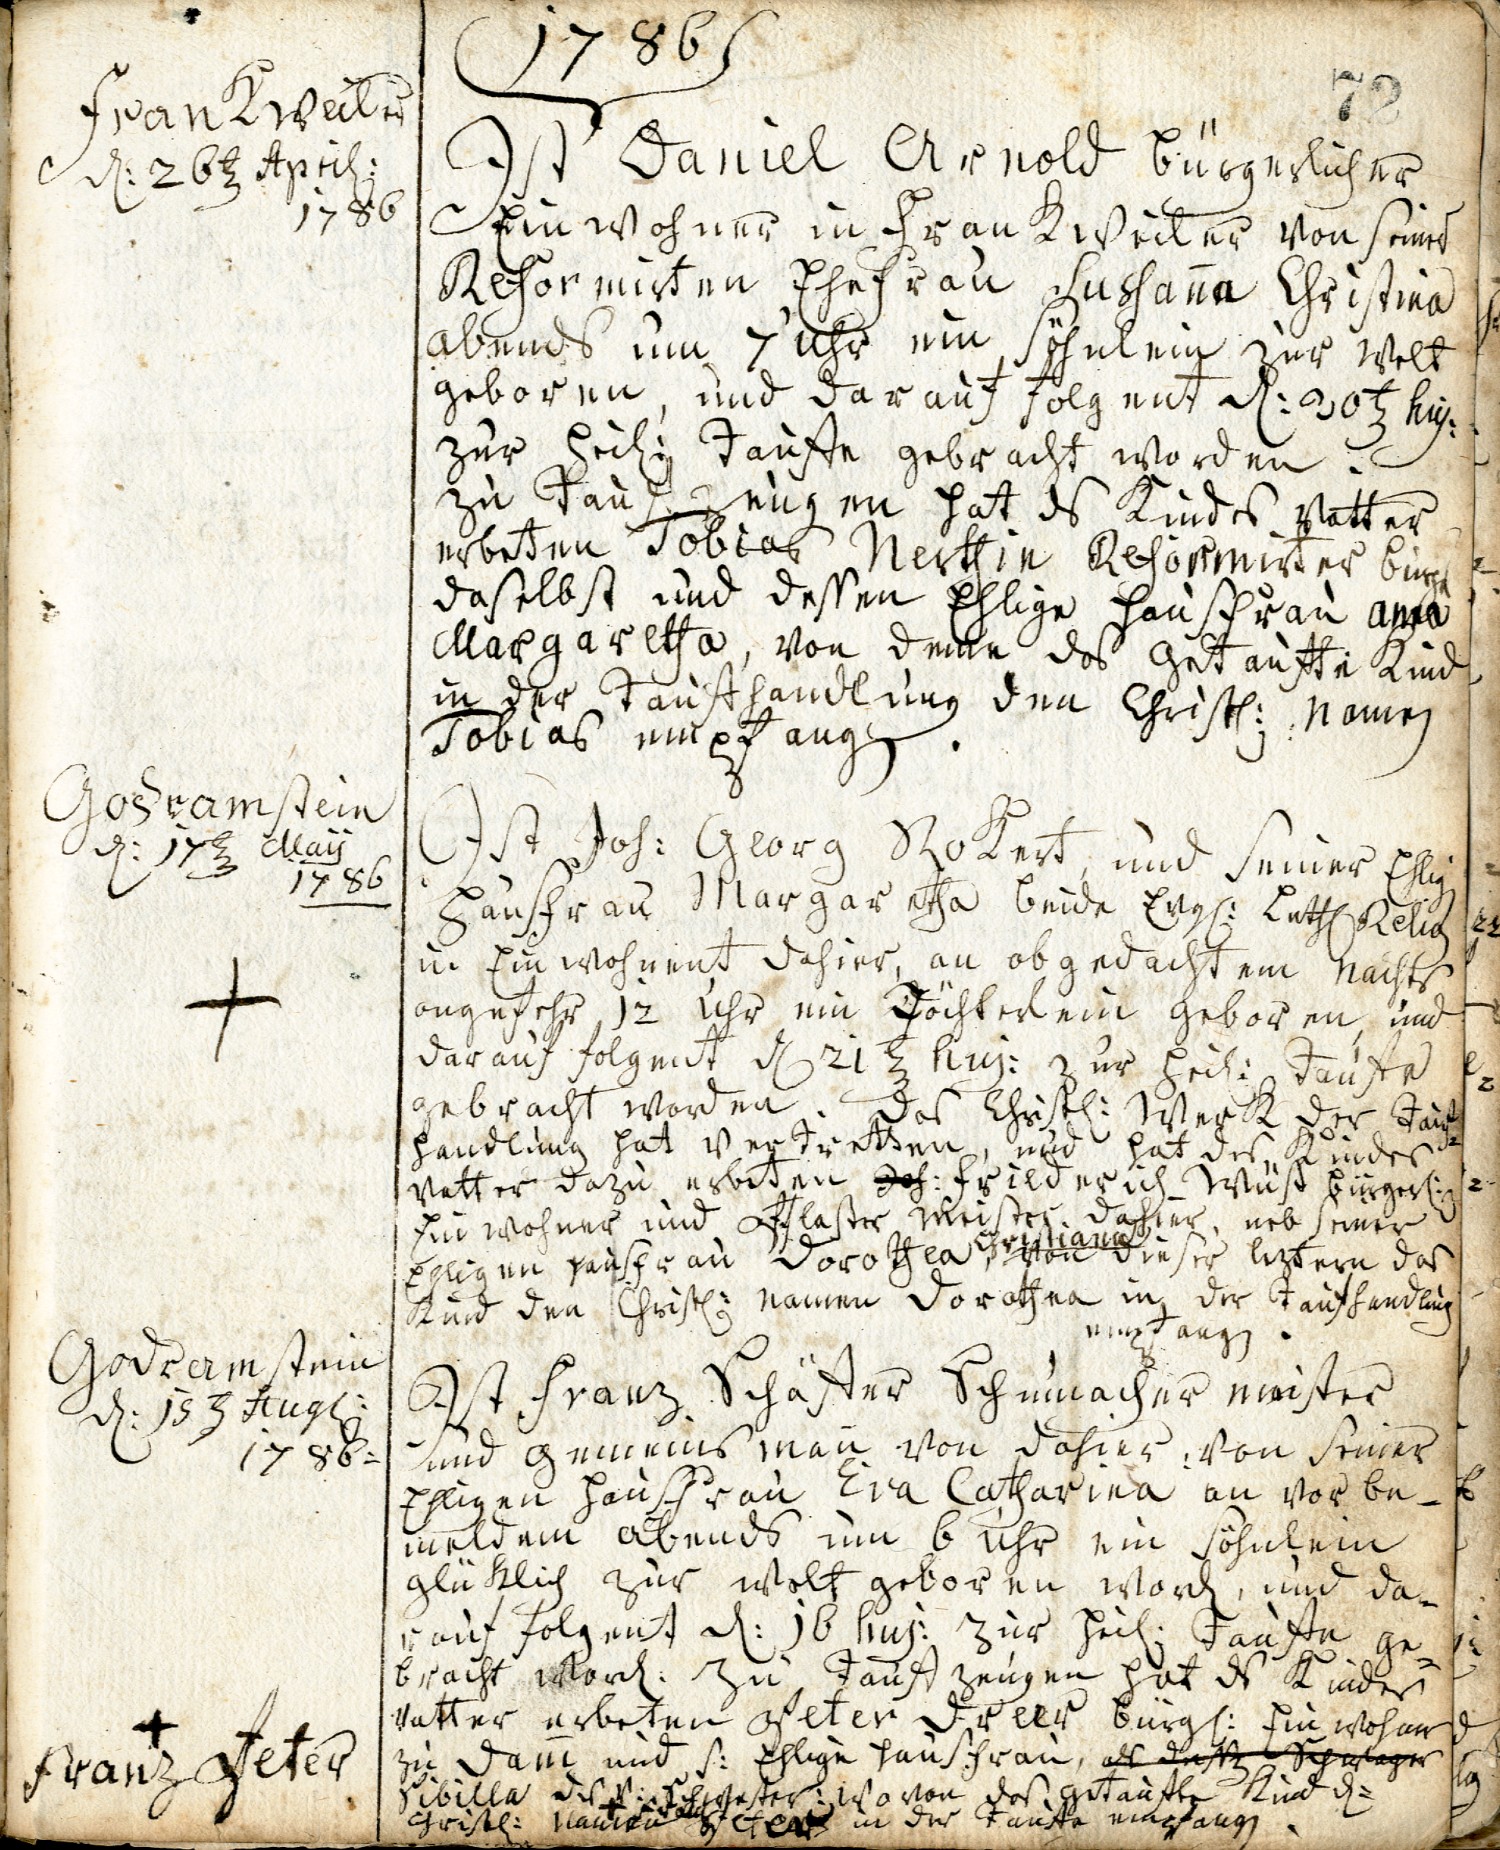 1786
72
FranKweiler
d: 26t April:
1786
Ist Daniel Arnold bürgerlicher
Einwohner in FranKweiler von seiner
Reformirten Ehefrau Susſanna Christina
abends um 7 Uhr ein Söhnlein zur Welt
geboren, und darauf folgent d: 30t huj:
zur heil: Tauffe gebracht worden.
zu Tauf Zeugen hat ds Kindes Vatter
erbeten Tobias Reformirter bürgr
daselbst und dessen Ehlige Hausfrau anna
Margaretha, von deme das getaufte Kind
in der Taufhandlung den Christl: Namen
Tobias empfang.
Godramstein
d: 17t Maij
1786
Ist Joh: Georg RoKert, und seiner Ehlig
Hausfrau Margaretha beide Evgl: Luth Relig
in Einwohnent dahier, an obgedachtem Nachts
ongefehr 12 Uhr ein Töchterlein geboren, und
darauf folgent d 21t huj: zur heil: Tauffe
gebracht worden. Das Christl: WerK der Tauf=
handlung hat Vertretten, und hat des Kindes
Vatter dazu erbeten Joh: friderich Wüst bürgerl:
Einwohner und Pflaster Meister dahier, neb seiner
Ehligen hausfrau Dorothea Christiana, von dieser letztern das
Kind den Christl: Namen Dorothea in der Taufhandlung
empfang.
Godramstein
d: 15t Aug:
1786=
Ist Franz Schäffer Schumacher meister
und gemeinsman von dahier, von seiner
Ehligen Hausfrau Eva Catharina an vorbe-
meldem abends um 6 Uhr ein söhnlein
glüklich zur welt geboren word, und da-
rauf folgent d: 16 huj: zur heil: Tauffe ge-
bracht word: Zu Tauf zeugen hat ds Kindes
Vatter erbeten Peter Dreer bürgl: Einwohner
zu Dam und s: Ehlige hausfrau, Schwager
Sibilla Schwester: wovon das getaufte Kind d=
Christl: Namen Franz Peter in der Tauffe empfang.
Franz Peter